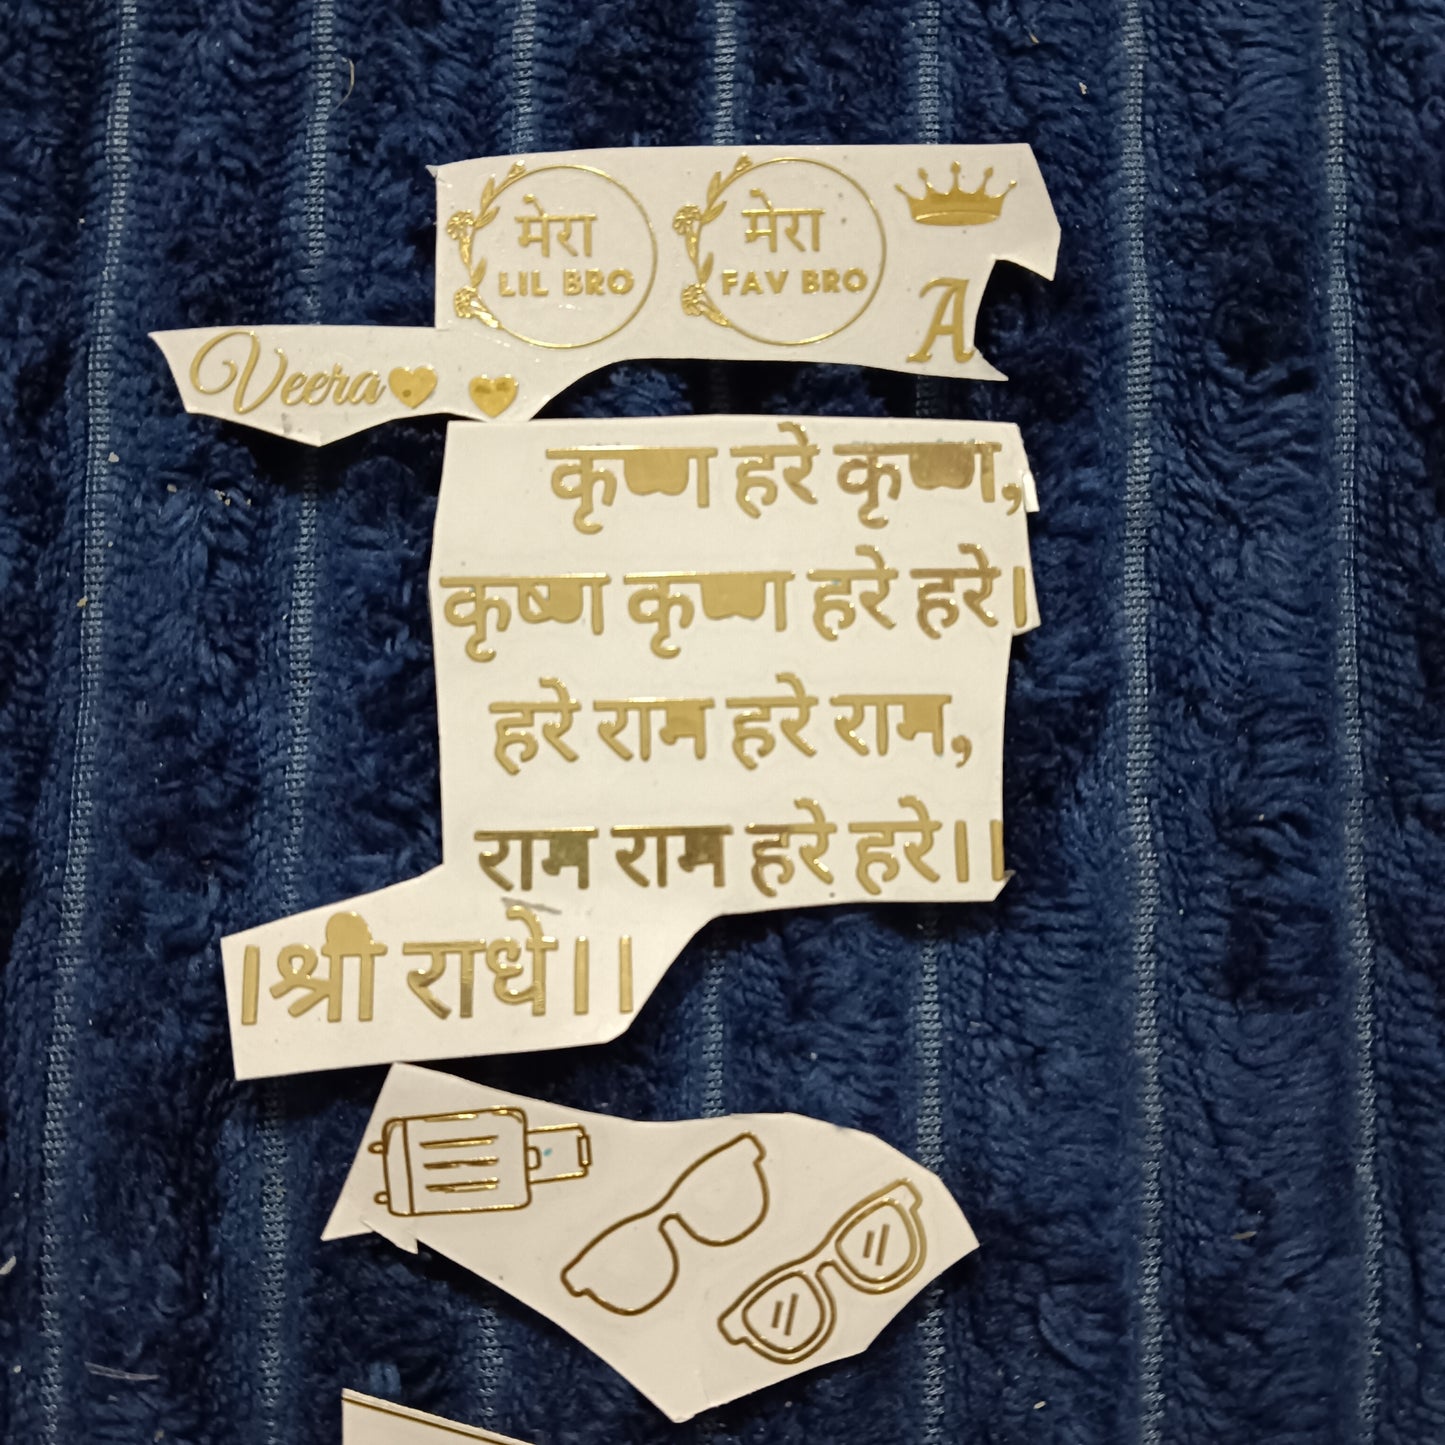 मेरा
LIL BRO
मेरा
FAV BRO
A
Veera
कृष्ण हरे कृष्ण,
कृष्ण कृष्ण हरे हरे।
हरे राम हरे राम,
राम राम हरे हरे।।
।श्री राधे।।